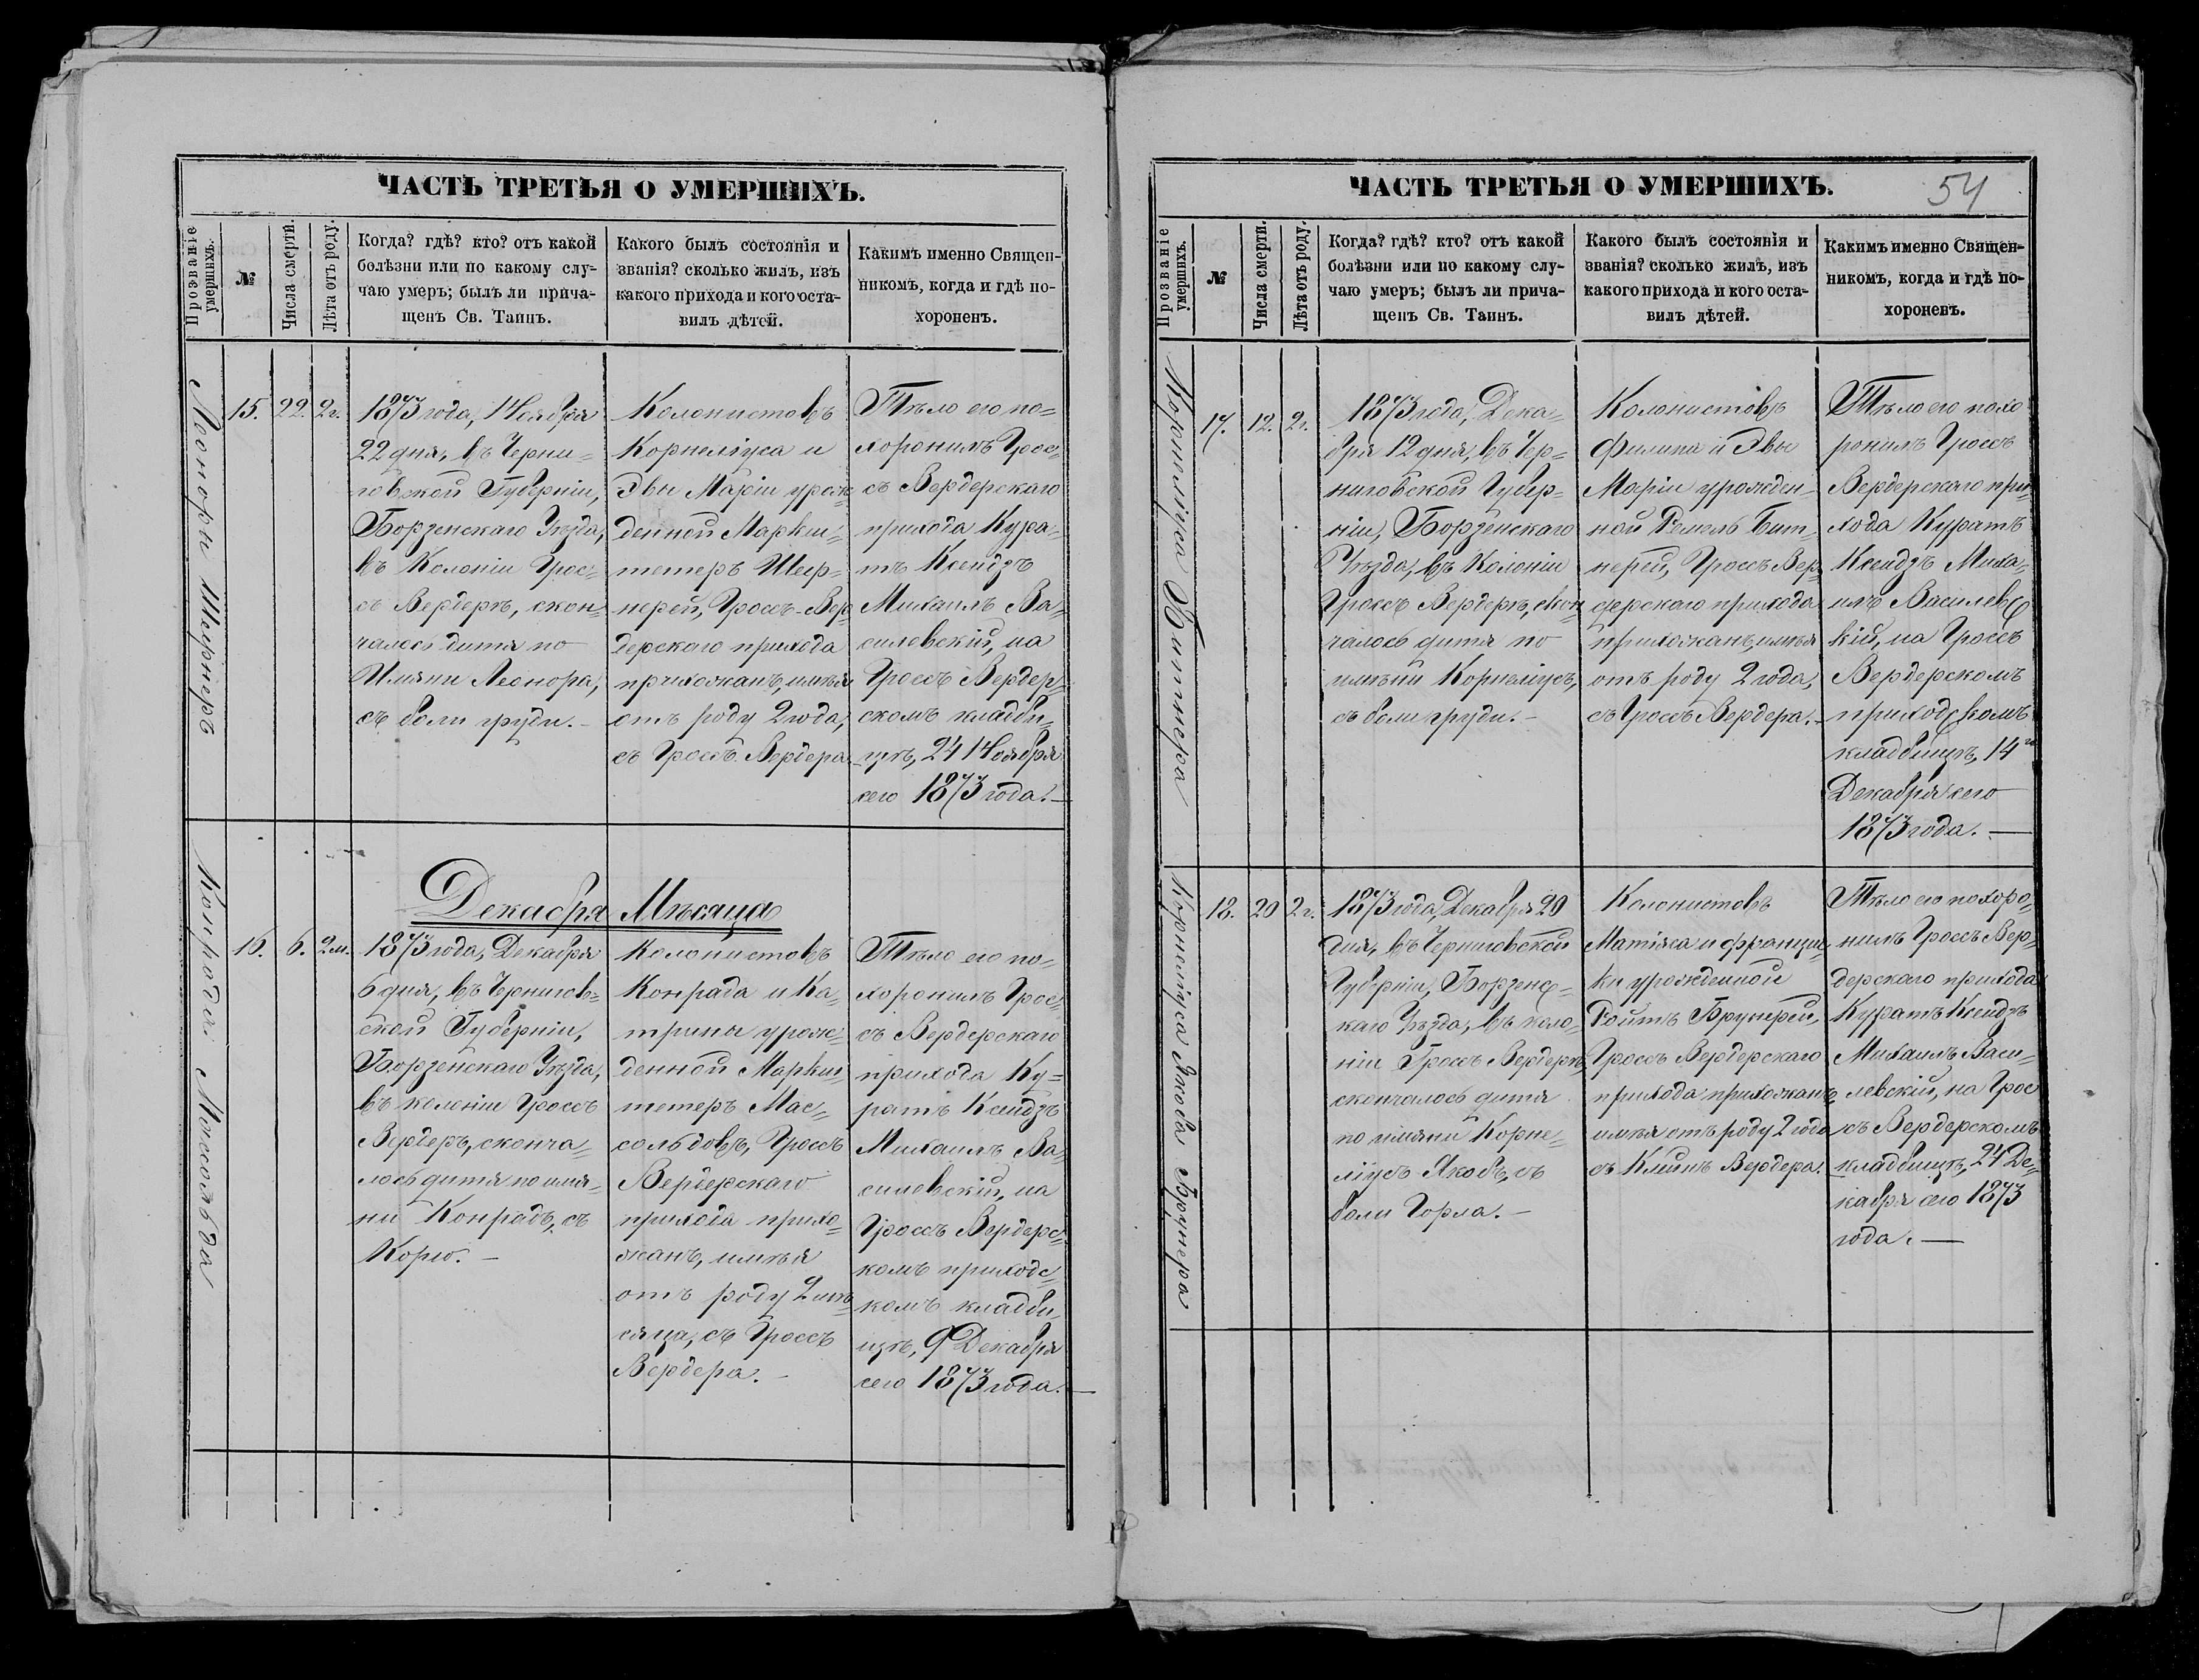 ЧАСТЬ ТРЕТЬЯ О УМЕРШИХЪ.
Прозваніе
умершихъ.
№
Числа смерти.
Лѣта отъ роду.
Когда? гдѣ? кто? отъ какой
болѣзни или по какому слу-
чаю умеръ; былъ ли прича-
щенъ Св. Таинъ.
Какого былъ состоянія и
званія? сколько жилъ, изъ
какого прихода и кого оста-
вилъ дѣтей.
Какимъ именно Священ-
никомъ, когда и гдѣ по-
хороненъ.
Леонори Шернеръ
15.
22.
2г.
1873 года, Ноября
22 дня, въ Черни-
говской Губерніи,
Борзенскаго Уѣзда,
въ Колоніи Грос-
съ Вердеръ, скон-
чалось дитя по
Имяни Леонора,
съ боли груди. –
Колонистовъ
Корнеліуса и
Эвы Маріи урож-
денной Маркви-
тетеръ
нерей, Гроссъ-Вер-
дерского прихода
прихожанъ, имѣя
отъ роду 2 года,
съ Гроссъ Вердера.
Тѣло его по-
хоронилъ Грос-
съ Вердерскаго
прихода Кура-
тъ Ксендзъ
Михаилъ Ва-
силевскій, на
Гроссъ Вердер-
скомъ кладби-
щѣ, 24 Ноября
сего 1873 года. –
Декабря Мѣсяца
Конрада Массольда
16.
6.
2м.
1873 года, Декабря
6 дня, въ Чернигов-
ской Губерніи,
Борзенскаго Уѣзда,
въ колоніи Гроссъ
Вердеръ, сконча-
лось дитя по имя-
ни Конрадъ, съ
Корю. –
Колонистовъ
Конрада и Ка-
трины урож-
денной Маркви-
тетеръ Мас-
сольдовъ, Гроссъ
Вердерскаго
прихода прихо-
жанъ, имѣя
отъ роду 2 мѣ-
сяца, съ Гроссъ
Вердера. –
Тѣло его по-
хоронилъ Грос-
съ Вердерскаго
прихода Ку-
ратъ Ксендзъ
Михаилъ Ва-
силевскій, на
Гроссъ Вердерс-
комъ приходс-
комъ кладби-
щѣ, 9 Декабря
сего 1873 года. –
ЧАСТЬ ТРЕТЬЯ О УМЕРШИХЪ.
54
Прозваніе
умершихъ.
№
Числа смерти.
Лѣта отъ роду.
Когда? гдѣ? кто? отъ какой
болѣзни или по какому слу-
чаю умеръ; былъ ли прича-
щенъ Св. Таинъ.
Какого былъ состоянія и
званія? сколько жилъ, изъ
какого прихода и кого оста-
вилъ дѣтей.
Какимъ именно Священ-
никомъ, когда и гдѣ по-
хороненъ.
Корнеліуса Биттнера
17.
12.
2г.
1873 года, Дека-
бря 12 дня, въ Чер-
ниговской Губер-
ніи, Борзенскаго
Уѣзда, въ Колоніи
Гроссъ Вердеръ, скон-
чалось дитя по
имѣни Корнеліусъ,
съ боли груди. –
Колонистовъ
Филипа и Эвы
Маріи урожден-
ной Бит-
нерей, Гроссъ Вер-
дерскаго прихода
прихожанъ, имѣя
отъ роду 2 года,
съ Гроссъ Вердера. –
Тѣло его похо
ронилъ Гроссъ
Вердерскаго при-
хода Куратъ
Ксендзъ Миха-
илъ Василевс-
кій, на Гроссъ
Вердерскомъ
приходскомъ
кладбищѣ, 14го
Декабря сего
1873 года. –
Корнеліуса Якова Брунера
18.
20
2г.
1873 года, Декабря 20
дня, въ Черниговской
Губерніи, Борзенс-
каго Уѣзда, въ коло-
ніи Гроссъ Вердеръ,
скончалось дитя
по имяни Корне-
ліусъ Якобъ, съ
боли Горла. –
Колонистовъ
Матіяса и Францис-
ки урожденной
Ройтъ Брунерей,
Гроссъ Вердерскаго
прихода прихожанъ,
имѣя отъ роду 2 года
съ Клейнъ Вердера.
Тѣло его похоро-
нилъ Гроссъ Вер-
дерскаго прихода
Куратъ Ксендзъ
Михаилъ Васи-
левскій, на Грос
съ Вердерскомъ
кладбищѣ, 24 Де-
кабря сего 1873
года. –